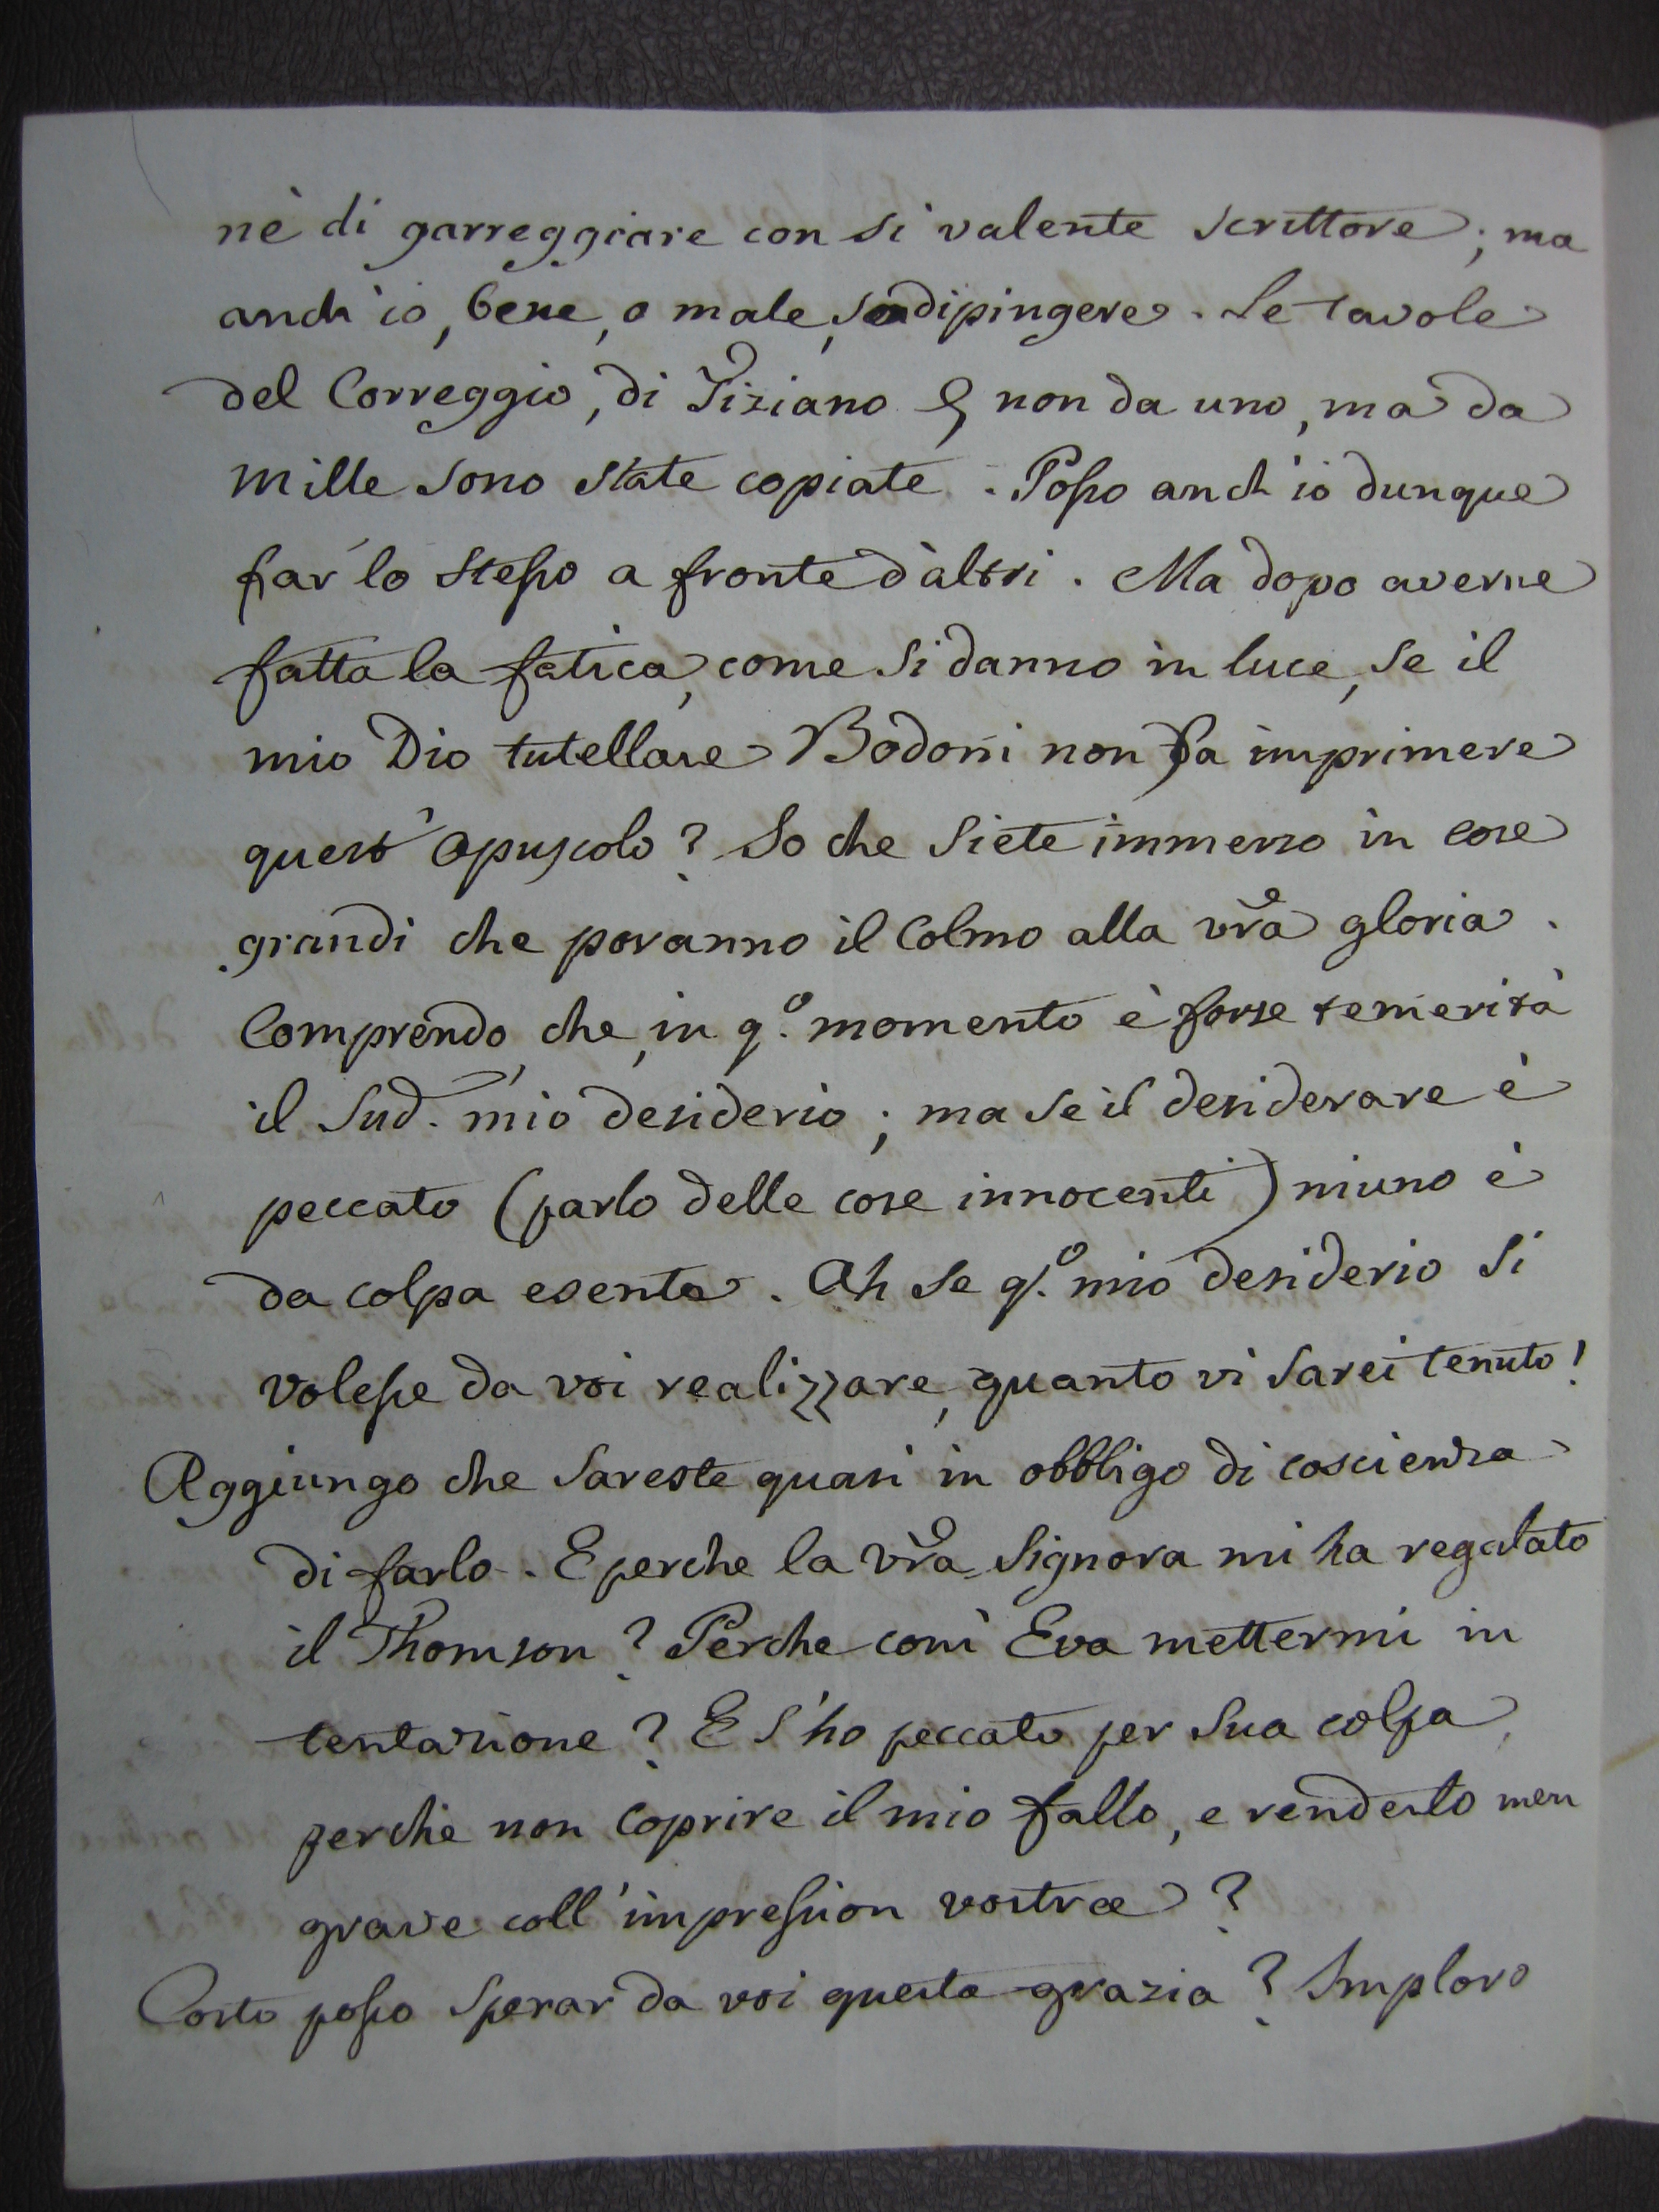 nè di garreggiare con sì valente scrittore; ma
anch'io, bene, o male, so dipingere. Le tavole
del Correggio, di Tiziano & non da uno, ma da
mille sono state copiate. Posso anch'io dunque
far lo stesso a fronte d'altri. Ma dopo averne
fatta la fatica, come si danno in luce, se il
mio Dio tutellare Bodoni non fa imprimere
quest'opuscolo? So che siete immerso in cose
grandi che poranno il colmo alla vra gloria.
Comprendo, che in qo. momento è forse temerità
il sud. mio desiderio; ma se il desiderare è
peccato (parlo delle cose innocenti) niuno è
da colpa esente. Ah se qo. mio desiderio si
volesse da voi realizzare, quanto vi sarei tenuto!
Aggiungo che sareste quasi in obbligo di coscienza
di farlo. E perche la vra Signora mi ha regalato
il Thomson? Perche così Eva mettermi in
tentazione? E s'ho peccato per sua colpa,
perchè non coprire il mio fallo, e renderlo men
grave coll'impression vostra?
Certo posso sperar da voi questa grazia? Imploro